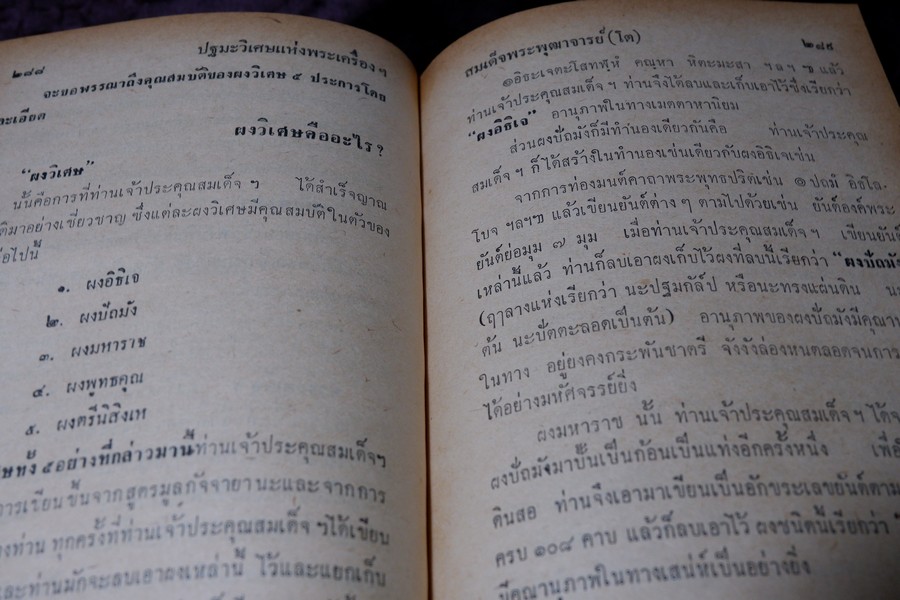 ๒๘๘
ปฐมะวิเศษแห่งพระเครื่อง ฯ
จะขอพรรณาถึงคุณสมบัติของผงวิเศษ ๕ ประการโดย
ละเอียด
ผงวิเศษคืออะไร ?
"ผงวิเศษ"
นั้นคือการที่ท่านเจ้าประคุณสมเด็จ ฯ ได้สำเร็จญาณ
มาอย่างเชี่ยวชาญ ซึ่งแต่ละผงวิเศษมีคุณสมบัติในตัวของ
ต่อไปนี้
๑. ผงอิธิเจ
๒. ผงปัถมัง
๓. ผงมหาราช
๔. ผงพุทธคุณ
๕. ผงตรีนิสิงเห
ทั้ง ๕อย่างที่กล่าวมานี้ท่านเจ้าประคุณสมเด็จฯ
การเขียนขึ้นจากสูตรมูลกัจจายานะและจากการ
ท่าน ทุกครั้งที่ท่านเจ้าประคุณสมเด็จ ฯได้เขียน
และท่านมักจะลบเอาผงเหล่านี้ ไว้และแยกเก็บ
สมเด็จพระพุฒาจารย์ (โต)
๒๘๙
๑อิธะเจตะโสทฬฺหํ คณฺหา หิตะมะสา ฯลฯ ๆ แล้ว
ท่านเจ้าประคุณสมเด็จ ฯ ท่านจึงได้ลบและเก็บเอาไว้ซึ่งเรียกว่า
"ผงอิธิเจ" อานุภาพในทางเมตตาหานิยม
ส่วนผงปัถมังก็มีทำนองเดียวกันคือ ท่านเจ้าประคุณ
สมเด็จ ฯ ก็ได้สร้างในทำนองเช่นเดียวกับผงอิธิเจเช่น
จากการท่องมนต์คาถาพระพุทธปริตเช่น ๑ ปถมํ อิธโล-
โบจ ฯลฯๆ แล้วเขียนยันต์ต่าง ๆ ตามไปด้วยเช่น ยันต์องค์พระ
ยันต์ย่อมุม ๗ มุม เมื่อท่านเจ้าประคุณสมเด็จ ฯ เขียนยันต์
เหล่านี้แล้ว ท่านก็ลบเอาผงเก็บไว้ผงที่ลบนี้เรียกว่า "ผงปัถมัง
(ฤๅลางแห่งเรียกว่า นะปฐมกัล์ป หรือนะทรงแผ่นดิน
ต้น นะปัตตะลอดเป็นต้น) อานุภาพของผงปัถมังมีคุณ
ในทาง อยู่ยงคงกระพันชาตรี จังงังล่องหนตลอดจนการ
ได้อย่างมหัศจรรย์ยิ่ง
ผงมหาราช นั้น ท่านเจ้าประคุณสมเด็จ ฯ ได้
ผงปัถมังมาปั้นเป็นก้อนเป็นแท่งอีกครั้งหนึ่ง
ดินสอ ท่านจึงเอามาเขียนเป็นอักขระเลขยันต์ตาม
ครบ ๑๐๘ คาบ แล้วก็ลบเอาไว้ ผงชนิดนี้เรียกว่า "
มีคุณานุภาพในทางเสน่ห์เป็นอย่างยิ่ง